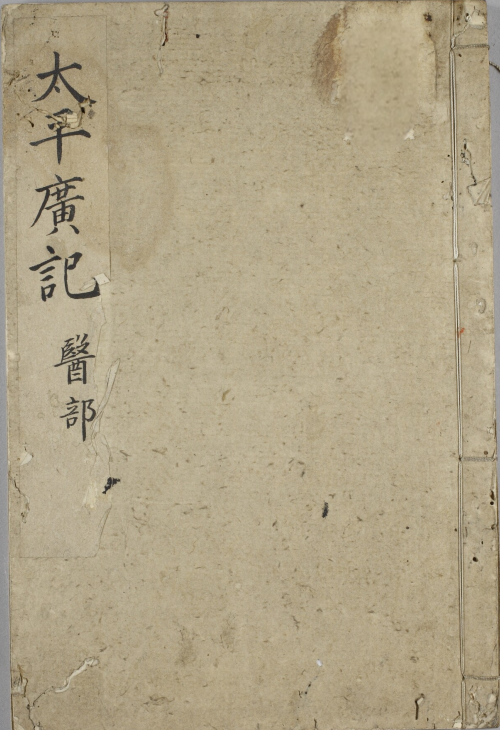 太平廣記
醫部